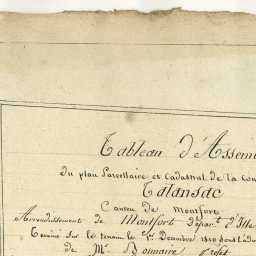 Tableau d'Assem
du plan Parcellaire et Cadastral de la Com
Talansac
Canton de Montfort
Arrondissement de Montfort Départ.t d'Ille
Terminé sur le terrain le 1.er Décembre 18
de Mr. Bonnaire Préfet